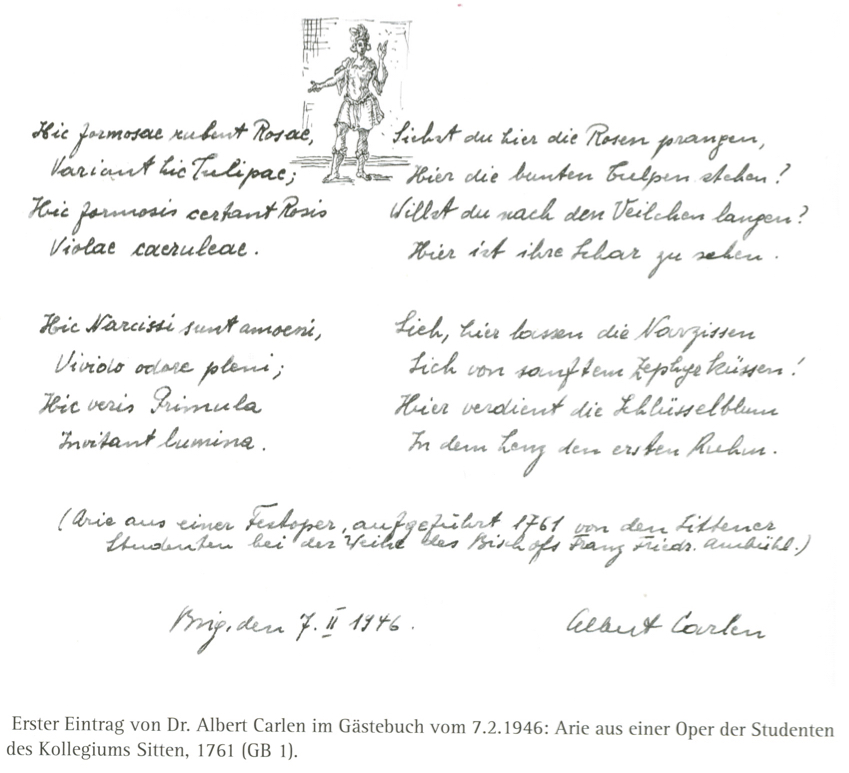 Hic formosae rubent Rosae,
Variant hic Tulipae;
Hic formosis certant Rosis
Violae caeruleae.
Hic Narcissi sunt amoeni,
Vivido odore pleni;
Hic veris Primula
Invitant lumina.
Siehst du hier die Rosen prangen,
Hier die bunten Tulpen stehen?
Willst du nach den Veilchen langen?
Hier ist ihre Schar zu sehen.
Sieh, hier lassen die Narzissen
Sich von sanftem Zephyr küssen!
Hier verdient die Schlüsselblum
In dem Lenz den ersten Ruhm.
(Arie aus einer Festoper, aufgeführt 1761 von den Sittener
Studenten bei der Weihe des Bischofs Franz Friedr. Ambühl.)
Brig, den 7. II 1946.
Albert Carlen
Erster Eintrag von Dr. Albert Carlen im Gästebuch vom 7.2.1946: Arie aus einer Oper der Studenten
des Kollegiums Sitten, 1761 (GB 1).